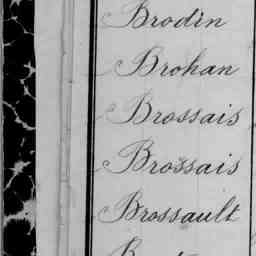 Brodin
Brohan
Brossais
Brossais
Brossault